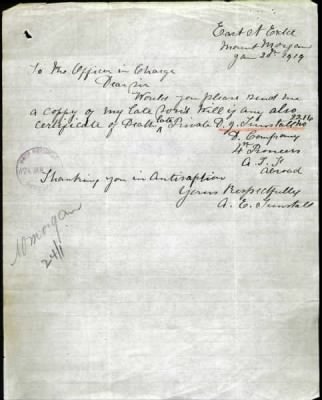 East St Exld
Mount Morgan
Jan 21st 1919
To the Officer in Charge
Dear sir
Would you please send me
a copy of my late son's will if any also
certificate of Death Late Private D. J. Tunstall No 2216
D. Company
4th Pioneers
A. I. F
abroad
Thanking you in Antisaption
Yours Respectfully
A. E. Tunstall
Morgan
24/1